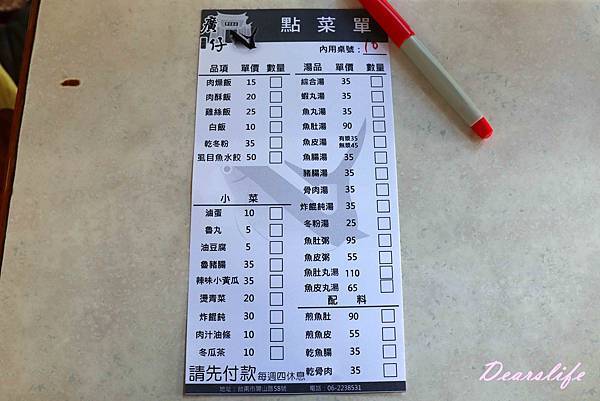 廣仔
點菜單
內用桌號:
品項 單價 數量
肉燥飯 15
肉酥飯 20
雞絲飯 25
白飯 10
乾冬粉 35
虱目魚水餃 50
小菜
滷蛋 10
魯丸 5
油豆腐 5
魯豬腸 35
辣味小黃瓜 35
燙青菜 20
炸餛飩 30
肉汁油條 10
冬瓜茶 10
請先付款 每週四休息
湯品 單價 數量
綜合湯 35
蝦丸湯 35
魚丸湯 35
魚肚湯 90
魚皮湯 有漿35 無漿45
魚腸湯 35
豬腸湯 35
骨肉湯 35
炸餛飩湯 35
冬粉湯 25
魚肚粥 95
魚皮粥 55
魚肚丸湯 110
魚皮丸湯 65
配料
煎魚肚 90
煎魚皮 55
乾魚腸 35
乾骨肉 35
地址:台南市開山路58號 電話:06-2238531
Dearslife